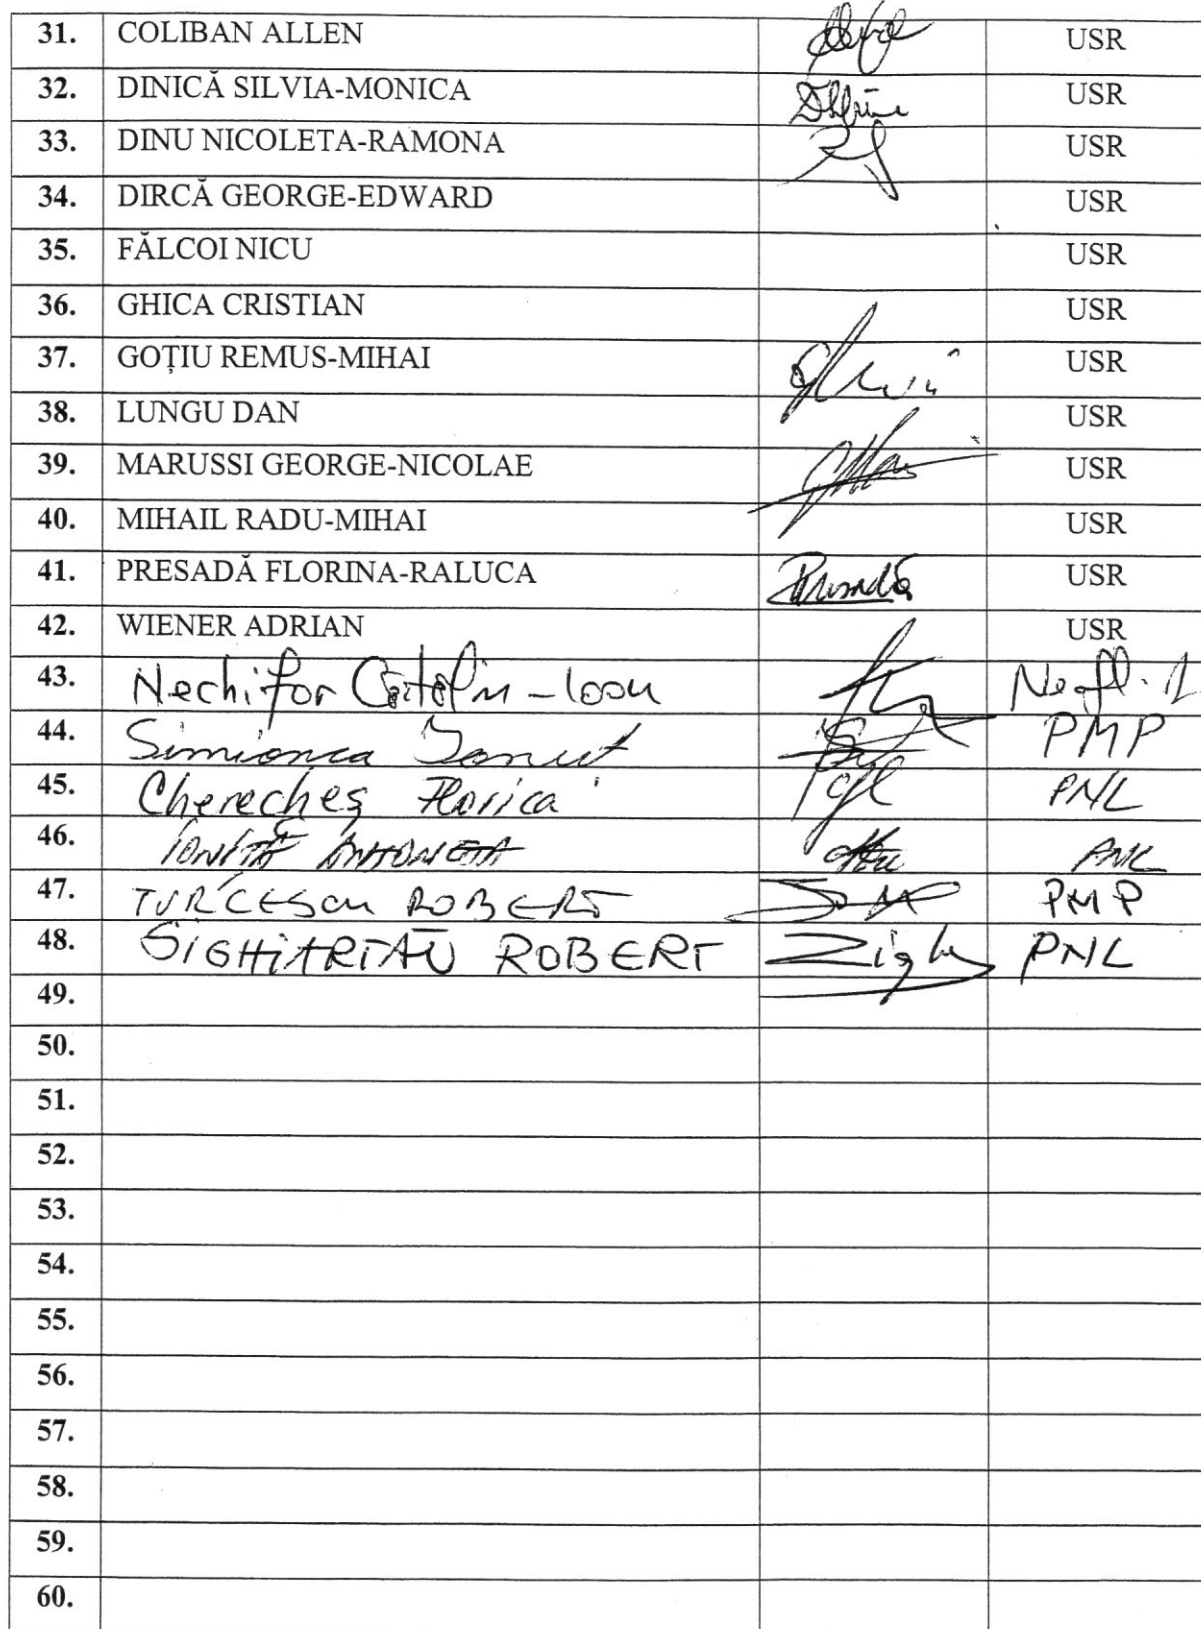 31. COLIBAN ALLEN USR
32. DINICĂ SILVIA-MONICA USR
33. DINU NICOLETA-RAMONA USR
34. DIRCĂ GEORGE-EDWARD USR
35. FĂLCOI NICU USR
36. GHICA CRISTIAN USR
37. GOȚIU REMUS-MIHAI USR
38. LUNGU DAN USR
39. MARUSSI GEORGE-NICOLAE USR
40. MIHAIL RADU-MIHAI USR
41. PRESADĂ FLORINA-RALUCA Presadă USR
42. WIENER ADRIAN USR
43. Nechifor Cătălin-Ioan Neafil.
44. Simionca Ionuț PMP
45. Cherecheș Florica PNL
46. IONIȚĂ ANTONETA PNL
47. TURCESCU ROBERT PMP
48. SIGHIARTĂU ROBERT PNL
49.
50.
51.
52.
53.
54.
55.
56.
57.
58.
59.
60.